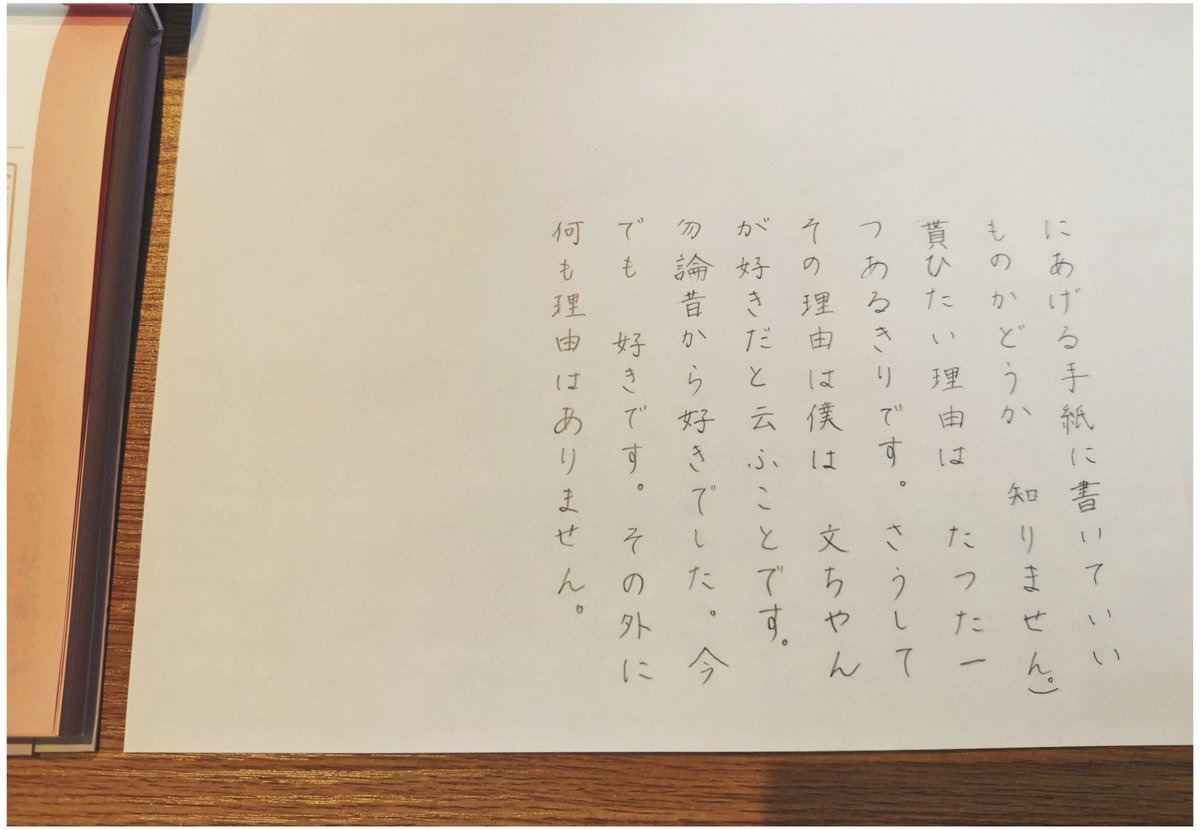 にあげる手紙に書いていい
ものかどうか　知りません。)
貰ひたい理由は　たつた一
つあるきりです。さうして
その理由は僕は　文ちやん
が好きだと云ふことです。
勿論昔から好きでした。今
でも　好きです。その外に
何も理由はありません。